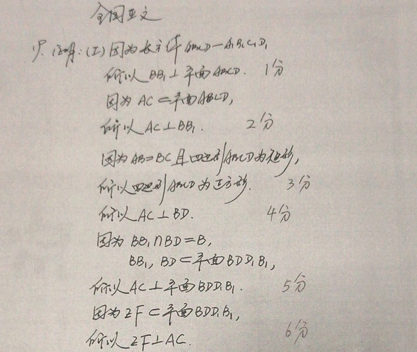 全国Ⅱ文
证明:(Ⅰ)因为长方体ABCD-A₁B₁C₁D₁
所以BB₁⊥平面ABCD. 1分
因为AC⊂平面ABCD,
所以AC⊥BB₁. 2分
因为AB=BC且四边形ABCD为矩形,
所以四边形ABCD为正方形. 3分
所以AC⊥BD. 4分
因为BB₁∩BD=B,
BB₁,BD⊂平面BDD₁B₁,
所以AC⊥平面BDD₁B₁. 5分
因为EF⊂平面BDD₁B₁,
所以EF⊥AC. 6分